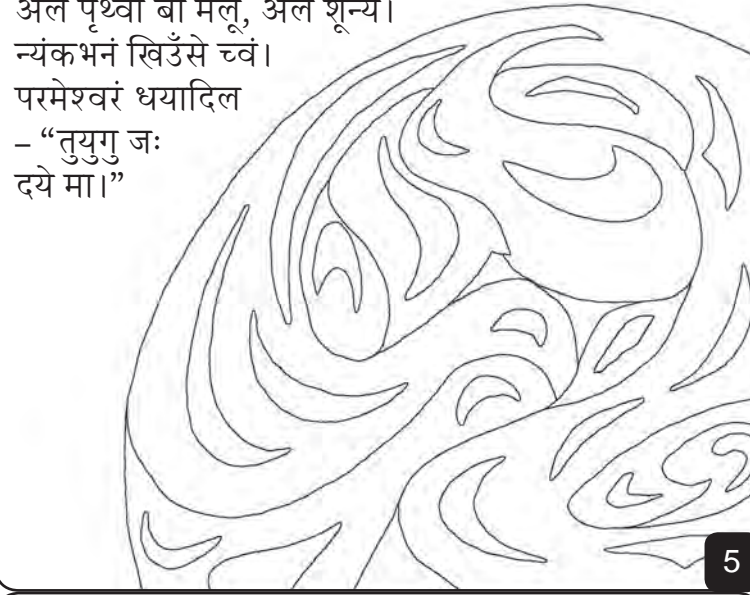 अले पृथ्वी बां मलू, अले शून्य।
न्यंकभनं खिउँसे च्वं।
परमेश्वरं धयादिल
– “तुयुगु जः
दये मा।”
5